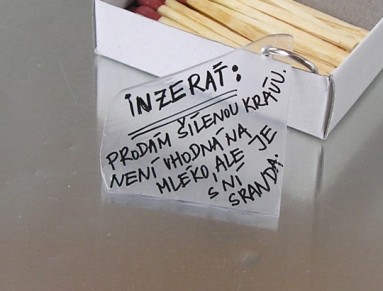 INZERÁT:
PRODÁM ŠÍLENOU KRÁVU.
NENÍ VHODNÁ NA
MLÉKO, ALE JE
S NÍ
SRANDA.